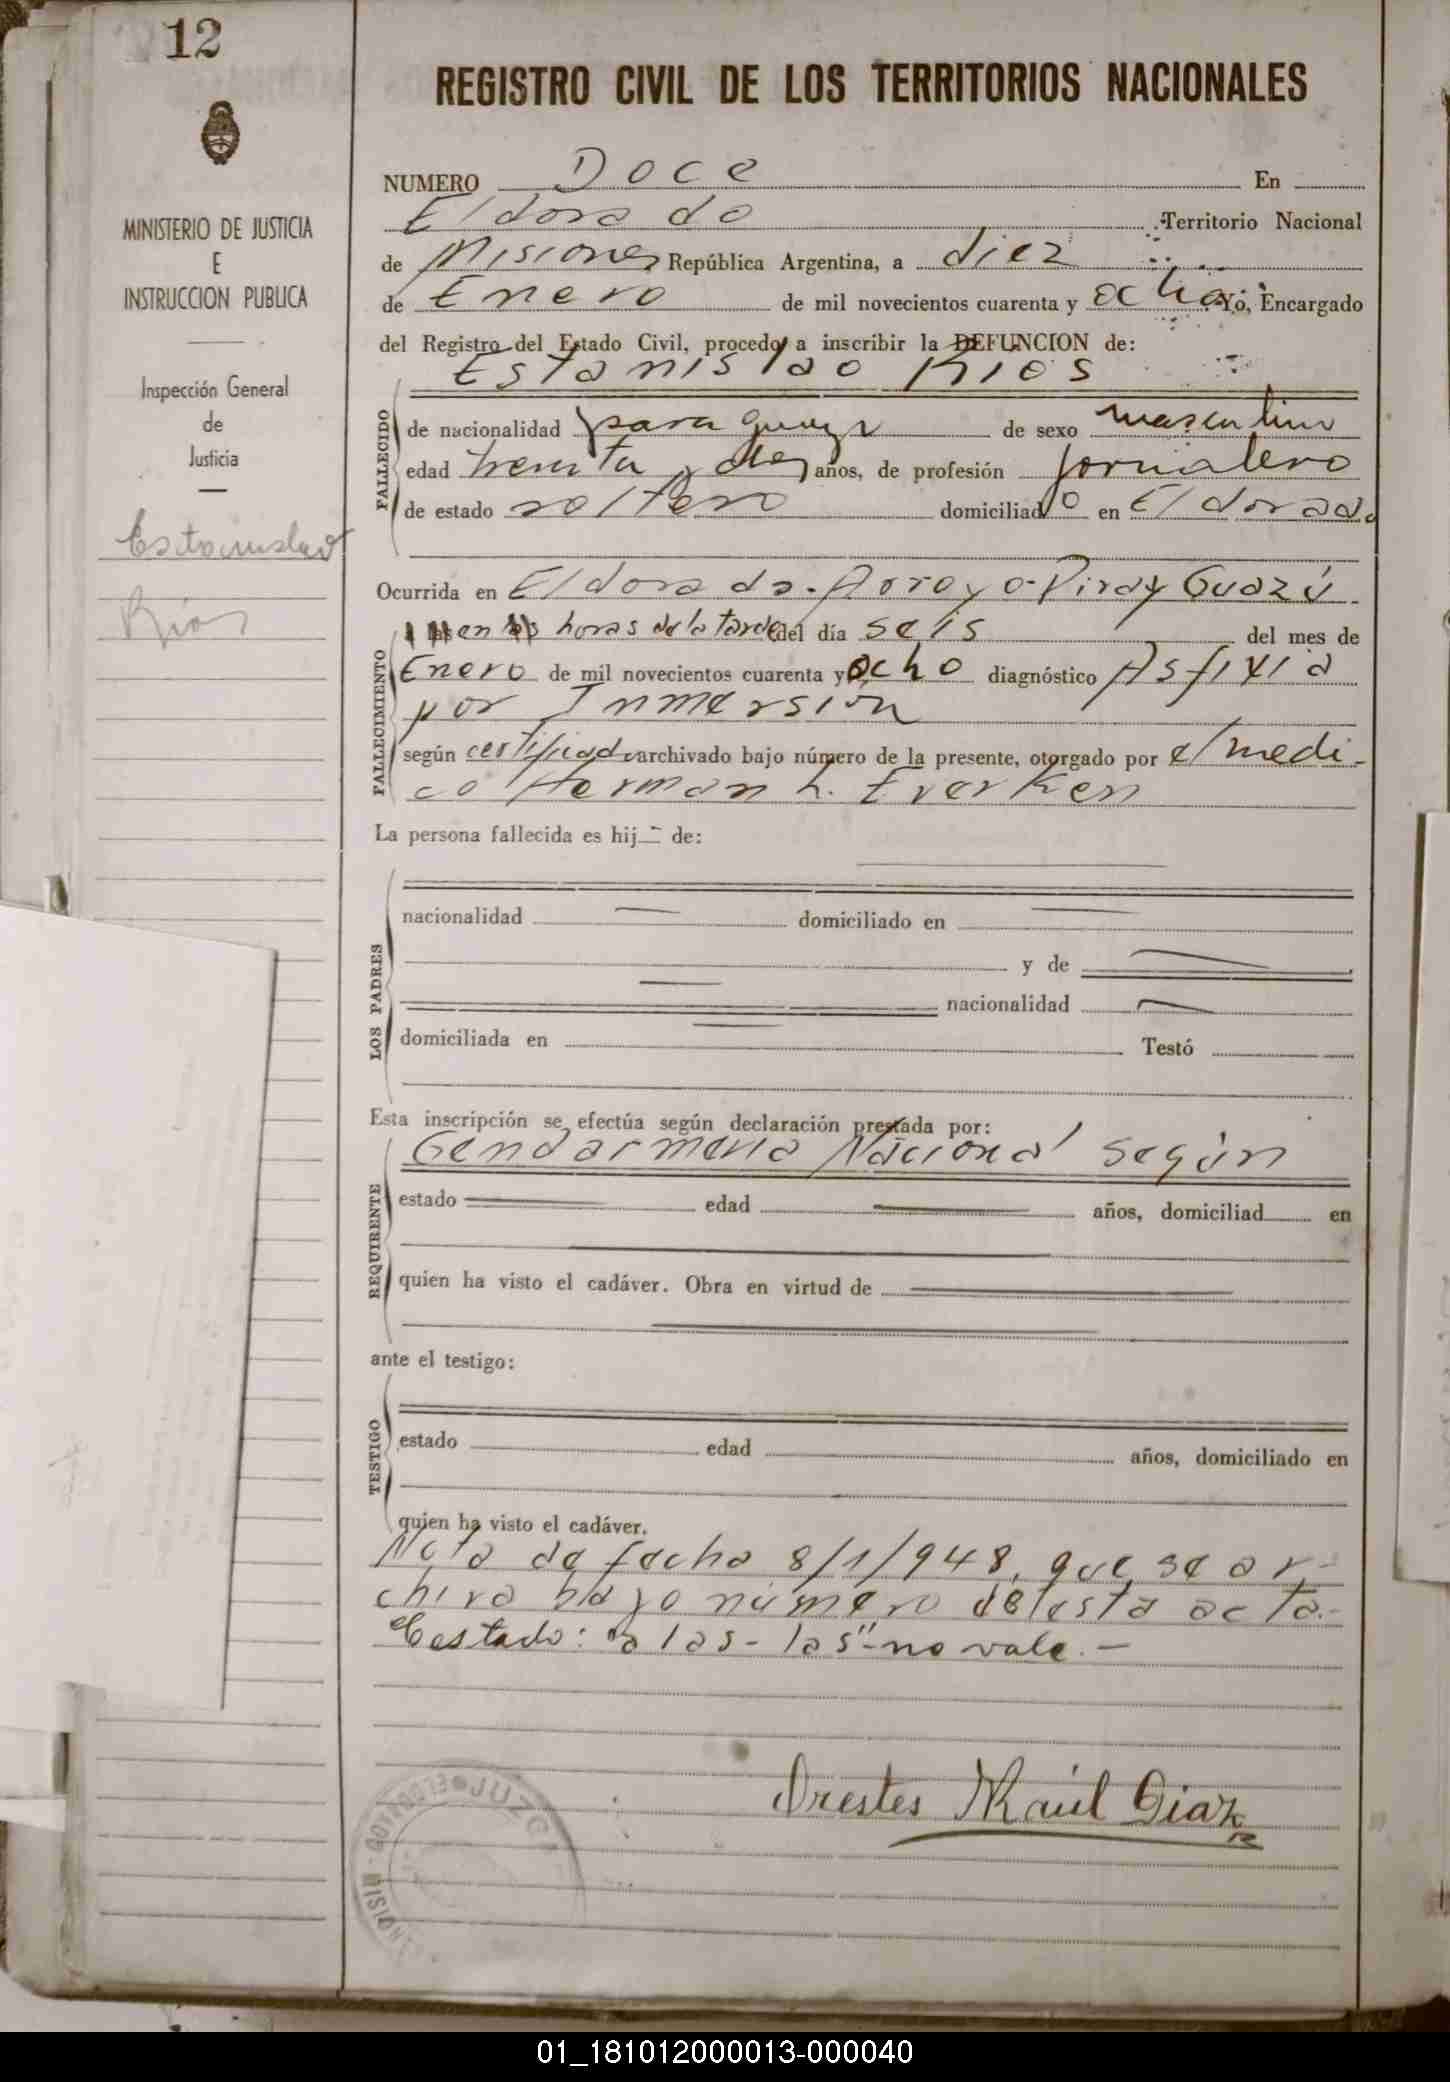 12
REGISTRO CIVIL DE LOS TERRITORIOS NACIONALES
MINISTERIO DE JUSTICIA
E
INSTRUCCION PUBLICA
Inspección General
de
Justicia
Estanislao
Ríos
NUMERO Doce En
Eldorado Territorio Nacional
de Misiones República Argentina, a diez
de Enero de mil novecientos cuarenta y ocho Yo, Encargado
del Registro del Estado Civil, procedo a inscribir la DEFUNCION de:
Estanislao Ríos
FALLECIDO
de nacionalidad paraguaya de sexo masculino
edad treinta y dos años, de profesión jornalero
de estado soltero domiciliado en Eldorado
Ocurrida en Eldorado. Arroyo Piray Guazú
FALLECIMIENTO
en horas de la tarde del día seis del mes de
Enero de mil novecientos cuarenta y ocho diagnóstico Asfixia
por Inmersión
según certificado archivado bajo número de la presente, otorgado por el medi-
co Herman L. Everken
La persona fallecida es hij- de:
LOS PADRES
nacionalidad domiciliado en
y de
nacionalidad
domiciliada en Testó
Esta inscripción se efectúa según declaración prestada por:
REQUIRENTE
Gendarmeria Nacional según
estado edad años, domiciliad en
quien ha visto el cadáver. Obra en virtud de
ante el testigo:
TESTIGO
estado edad años, domiciliado en
quien ha visto el cadáver.
Nota de fecha 8/1/948, que se ar-
chiva bajo número de esta acta.-
Testado: "a las - las" - no vale. -
Orestes Raúl Diaz
JUZGA
ELDORADO
MISIONES
01_181012000013-000040